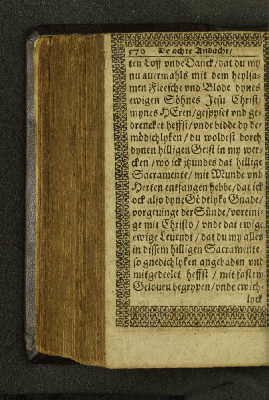 570 De achte Andacht/
ten Loff vnde Danck/ dat du my
nu auermahls mit dem heylsa-
men Fleesche vnd Blode dynes
ewigen Söhnes Jesu Christi
mynes HEren/ gespyset vnd ge-
drencket heffst/ vnde bidde dy de-
mödichlyken/ du woldest dorch
dynen hilligen Geist in my wer-
cken/ wo ick itzundes dat hillige
Sacramente/ mit Munde vnd
Herten entfangen hebbe/ dat ick
ock also dyne Gödtlyke Gnade/
vorgeuinge der Sünde/ voreini-
ge mit Christo/ vnde dat ewige
ewige Leuendt/ dat du my alles
in dissem hilligen Sacramente
so gnedichlyken angebaden vnd
mitgedeelet heffst/ mit fastem
Gelouen begrypen/ vnde ewich-
lyck